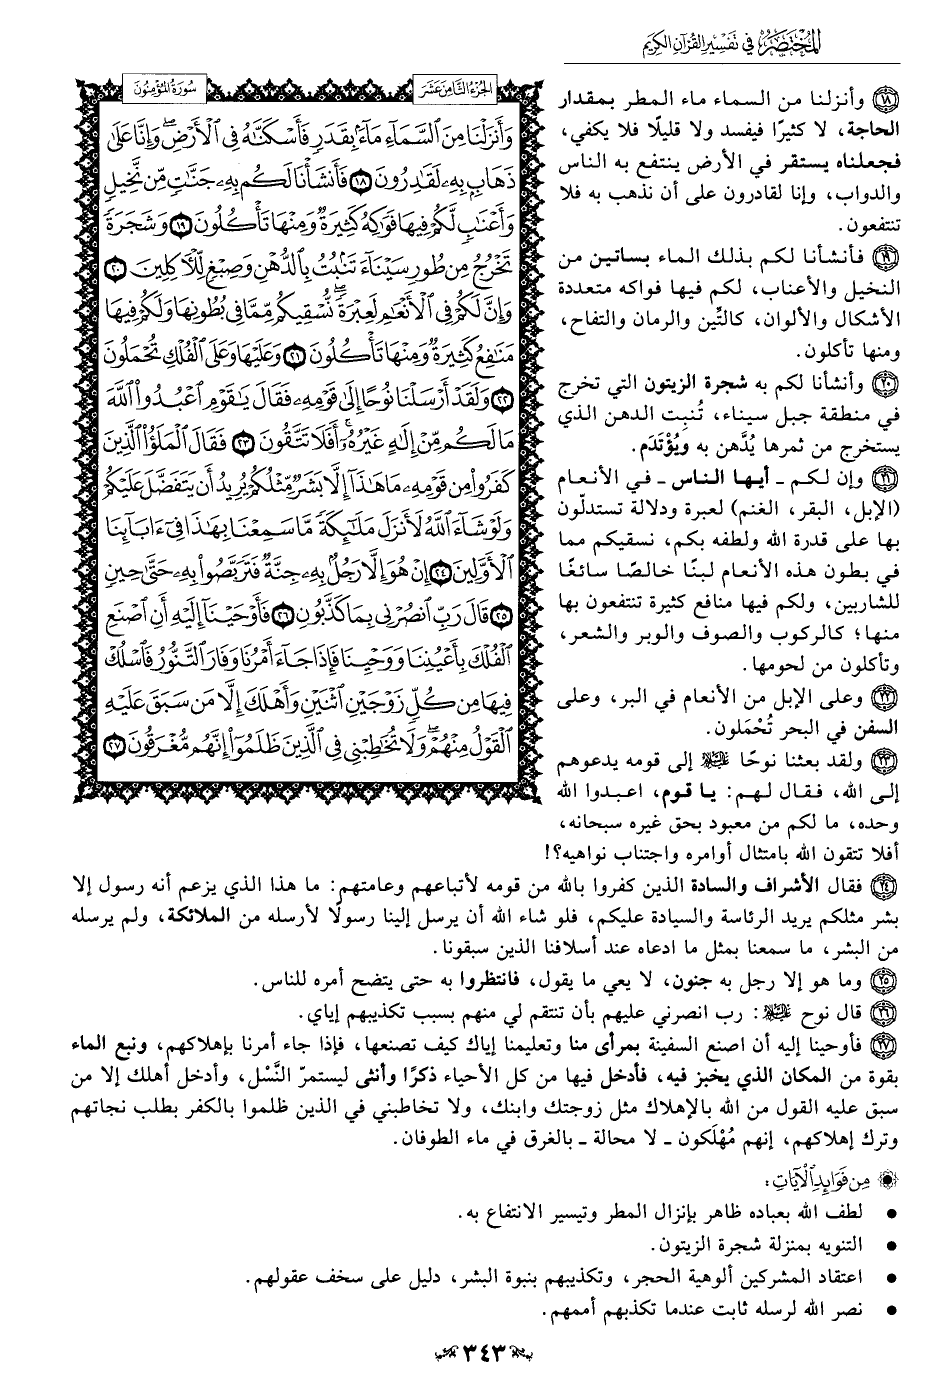 المختصر في تفسير القرآن الكريم
الجزء الثامن عشر
سورة المؤمنون
وَأَنزَلْنَا مِنَ ٱلسَّمَآءِ مَآءًۢ بِقَدَرٍ فَأَسْكَنَّٰهُ فِى ٱلْأَرْضِ ۖ وَإِنَّا عَلَىٰ
ذَهَابٍۭ بِهِۦ لَقَٰدِرُونَ ١٨ فَأَنشَأْنَا لَكُم بِهِۦ جَنَّٰتٍ مِّن نَّخِيلٍ
وَأَعْنَٰبٍ لَّكُمْ فِيهَا فَوَٰكِهُ كَثِيرَةٌ وَمِنْهَا تَأْكُلُونَ ١٩ وَشَجَرَةً
تَخْرُجُ مِن طُورِ سَيْنَآءَ تَنۢبُتُ بِٱلدُّهْنِ وَصِبْغٍ لِّلْءَاكِلِينَ ٢٠
وَإِنَّ لَكُمْ فِى ٱلْأَنْعَٰمِ لَعِبْرَةً ۖ نُّسْقِيكُم مِّمَّا فِى بُطُونِهَا وَلَكُمْ فِيهَا
مَنَٰفِعُ كَثِيرَةٌ وَمِنْهَا تَأْكُلُونَ ٢١ وَعَلَيْهَا وَعَلَى ٱلْفُلْكِ تُحْمَلُونَ
٢٢ وَلَقَدْ أَرْسَلْنَا نُوحًا إِلَىٰ قَوْمِهِۦ فَقَالَ يَٰقَوْمِ ٱعْبُدُوا۟ ٱللَّهَ
مَا لَكُم مِّنْ إِلَٰهٍ غَيْرُهُۥٓ ۖ أَفَلَا تَتَّقُونَ ٢٣ فَقَالَ ٱلْمَلَؤُا۟ ٱلَّذِينَ
كَفَرُوا۟ مِن قَوْمِهِۦ مَا هَٰذَآ إِلَّا بَشَرٌ مِّثْلُكُمْ يُرِيدُ أَن يَتَفَضَّلَ عَلَيْكُمْ
وَلَوْ شَآءَ ٱللَّهُ لَأَنزَلَ مَلَٰٓئِكَةً مَّا سَمِعْنَا بِهَٰذَا فِىٓ ءَابَآئِنَا
ٱلْأَوَّلِينَ ٢٤ إِنْ هُوَ إِلَّا رَجُلٌۢ بِهِۦ جِنَّةٌ فَتَرَبَّصُوا۟ بِهِۦ حَتَّىٰ حِينٍ
٢٥ قَالَ رَبِّ ٱنصُرْنِى بِمَا كَذَّبُونِ ٢٦ فَأَوْحَيْنَآ إِلَيْهِ أَنِ ٱصْنَعِ
ٱلْفُلْكَ بِأَعْيُنِنَا وَوَحْيِنَا فَإِذَا جَآءَ أَمْرُنَا وَفَارَ ٱلتَّنُّورُ ۙ فَٱسْلُكْ
فِيهَا مِن كُلٍّ زَوْجَيْنِ ٱثْنَيْنِ وَأَهْلَكَ إِلَّا مَن سَبَقَ عَلَيْهِ
ٱلْقَوْلُ مِنْهُمْ ۖ وَلَا تُخَٰطِبْنِى فِى ٱلَّذِينَ ظَلَمُوٓا۟ ۖ إِنَّهُم مُّغْرَقُونَ ٢٧
١٨ وأنزلنا من السماء ماء المطر بمقدار
الحاجة، لا كثيرًا فيفسد ولا قليلًا فلا يكفي،
فجعلناه يستقر في الأرض ينتفع به الناس
والدواب، وإنا لقادرون على أن نذهب به فلا
تنتفعون.
١٩ فأنشأنا لكم بذلك الماء بساتين من
النخيل والأعناب، لكم فيها فواكه متعددة
الأشكال والألوان، كالتِّين والرمان والتفاح،
ومنها تأكلون.
٢٠ وأنشأنا لكم به شجرة الزيتون التي تخرج
في منطقة جبل سيناء، تُنبِت الدهن الذي
يستخرج من ثمرها يُدَّهن به ويُؤْتدَم.
٢١ وإن لكم ـ أيها الناس ـ في الأنعام
(الإبل، البقر، الغنم) لعبرة ودلالة تستدلّون
بها على قدرة الله ولطفه بكم، نسقيكم مما
في بطون هذه الأنعام لبنًا خالصًا سائغًا
للشاربين، ولكم فيها منافع كثيرة تنتفعون بها
منها؛ كالركوب والصوف والوبر والشعر،
وتأكلون من لحومها.
٢٢ وعلى الإبل من الأنعام في البر، وعلى
السفن في البحر تُحْمَلون.
٢٣ ولقد بعثنا نوحًا عليه السلام إلى قومه يدعوهم
إلى الله، فقال لهم: يا قوم، اعبدوا الله
وحده، ما لكم من معبود بحق غيره سبحانه،
أفلا تتقون الله بامتثال أوامره واجتناب نواهيه؟!
٢٤ فقال الأشراف والسادة الذين كفروا بالله من قومه لأتباعهم وعامتهم: ما هذا الذي يزعم أنه رسول إلا
بشر مثلكم يريد الرئاسة والسيادة عليكم، فلو شاء الله أن يرسل إلينا رسولًا لأرسله من الملائكة، ولم يرسله
من البشر، ما سمعنا بمثل ما ادعاه عند أسلافنا الذين سبقونا.
٢٥ وما هو إلا رجل به جنون، لا يعي ما يقول، فانتظروا به حتى يتضح أمره للناس.
٢٦ قال نوح عليه السلام: رب انصرني عليهم بأن تنتقم لي منهم بسبب تكذيبهم إياي.
٢٧ فأوحينا إليه أن اصنع السفينة بمرأى منا وتعليمنا إياك كيف تصنعها، فإذا جاء أمرنا بإهلاكهم، ونبع الماء
بقوة من المكان الذي يخبز فيه، فأدخل فيها من كل الأحياء ذكرًا وأنثى ليستمرّ النَّسْل، وأدخل أهلك إلا من
سبق عليه القول من الله بالإهلاك مثل زوجتك وابنك، ولا تخاطبني في الذين ظلموا بالكفر بطلب نجاتهم
وترك إهلاكهم، إنهم مُهْلَكون ـ لا محالة ـ بالغرق في ماء الطوفان.
من فوائد الآيات:
● لطف الله بعباده ظاهر بإنزال المطر وتيسير الانتفاع به.
● التنويه بمنزلة شجرة الزيتون.
● اعتقاد المشركين ألوهية الحجر، وتكذيبهم بنبوة البشر، دليل على سخف عقولهم.
● نصر الله لرسله ثابت عندما تكذبهم أممهم.
٣٤٣